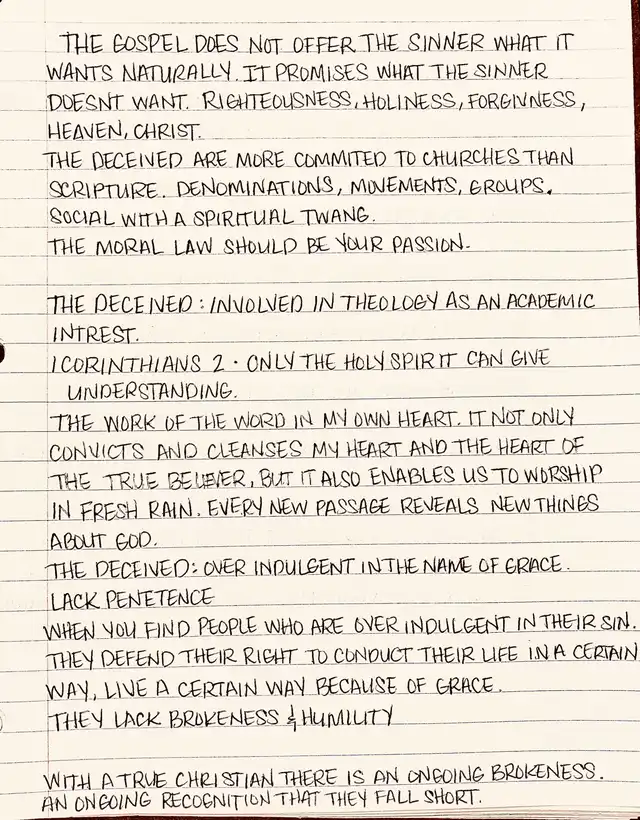 THE GOSPEL DOES NOT OFFER THE SINNER WHAT IT
WANTS NATURALLY. IT PROMISES WHAT THE SINNER
DOESNT WANT. RIGHTEOUSNESS, HOLINESS, FORGIVNESS,
HEAVEN, CHRIST.
THE DECEIVED ARE MORE COMMITED TO CHURCHES THAN
SCRIPTURE. DENOMINATIONS, MOVEMENTS, GROUPS.
SOCIAL WITH A SPIRITUAL TWANG.
THE MORAL LAW SHOULD BE YOUR PASSION.
THE DECEIVED: INVOLVED IN THEOLOGY AS AN ACADEMIC
INTREST.
1 CORINTHIANS 2 · ONLY THE HOLY SPIRIT CAN GIVE
UNDERSTANDING.
THE WORK OF THE WORD IN MY OWN HEART. IT NOT ONLY
CONVICTS AND CLEANSES MY HEART AND THE HEART OF
THE TRUE BELIEVER, BUT IT ALSO ENABLES US TO WORSHIP
IN FRESH RAIN. EVERY NEW PASSAGE REVEALS NEW THINGS
ABOUT GOD.
THE DECEIVED: OVER INDULGENT IN THE NAME OF GRACE.
LACK PENETENCE
WHEN YOU FIND PEOPLE WHO ARE OVER INDULGENT IN THEIR SIN.
THEY DEFEND THEIR RIGHT TO CONDUCT THEIR LIFE IN A CERTAIN
WAY, LIVE A CERTAIN WAY BECAUSE OF GRACE.
THEY LACK BROKENESS & HUMILITY
WITH A TRUE CHRISTIAN THERE IS AN ONGOING BROKENESS.
AN ONGOING RECOGNITION THAT THEY FALL SHORT.